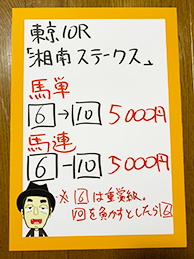 東京10R
「湘南ステークス」
馬単
6→10 5000円
馬連
6-10 5000円
※6は重賞級。
10を負かすとしたら6